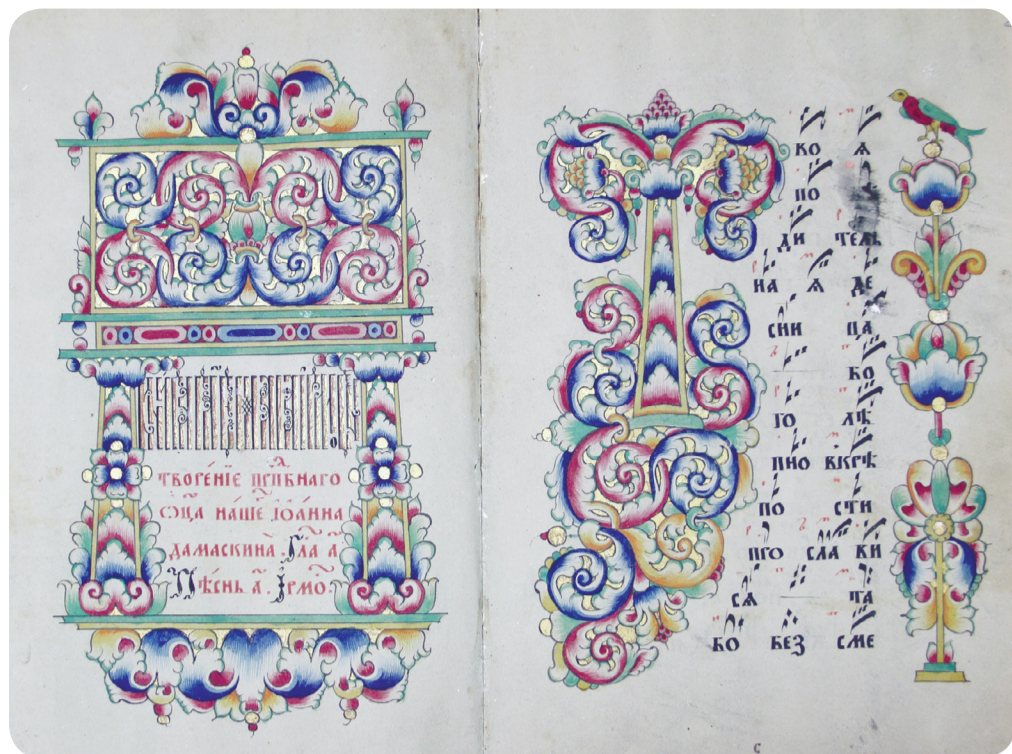 творе́нїе прпⷣбнаго
ѻц҃а на́шеⷢ іѡа́нна
дамаскина̀. Гла́ а҃
Пѣ́снь а҃. Ірмо́ⷭ.
Т
во я
по
ди тель
на я де
сни ца
бо
го лѣ
пно вкрѣ
по сти
про сла ви
ся та
бо без сме